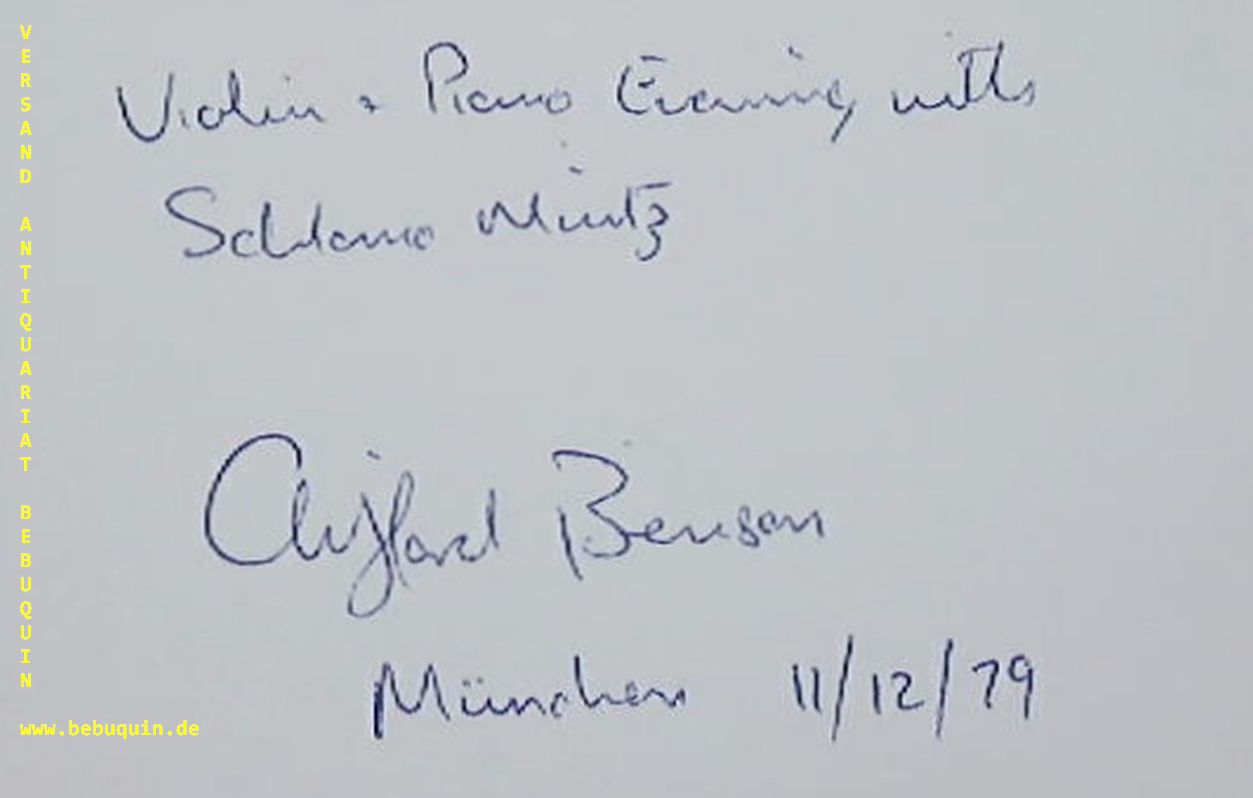 Violin + Piano Evening with
Schlomo Mintz
Clifford Benson
München 11/12/79
VERSAND ANTIQUARIAT BEBUQUIN
www.bebuquin.de